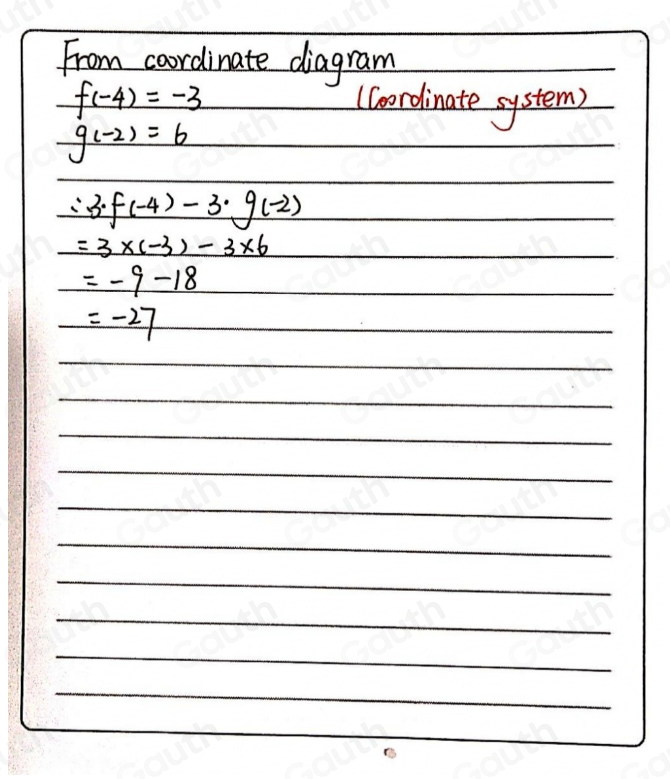 From coordinate diagram
f(-4) = -3 (Coordinate system)
g(-2) = 6
∴ 3·f(-4) - 3·g(-2)
= 3×(-3) - 3×6
= -9 - 18
= -27